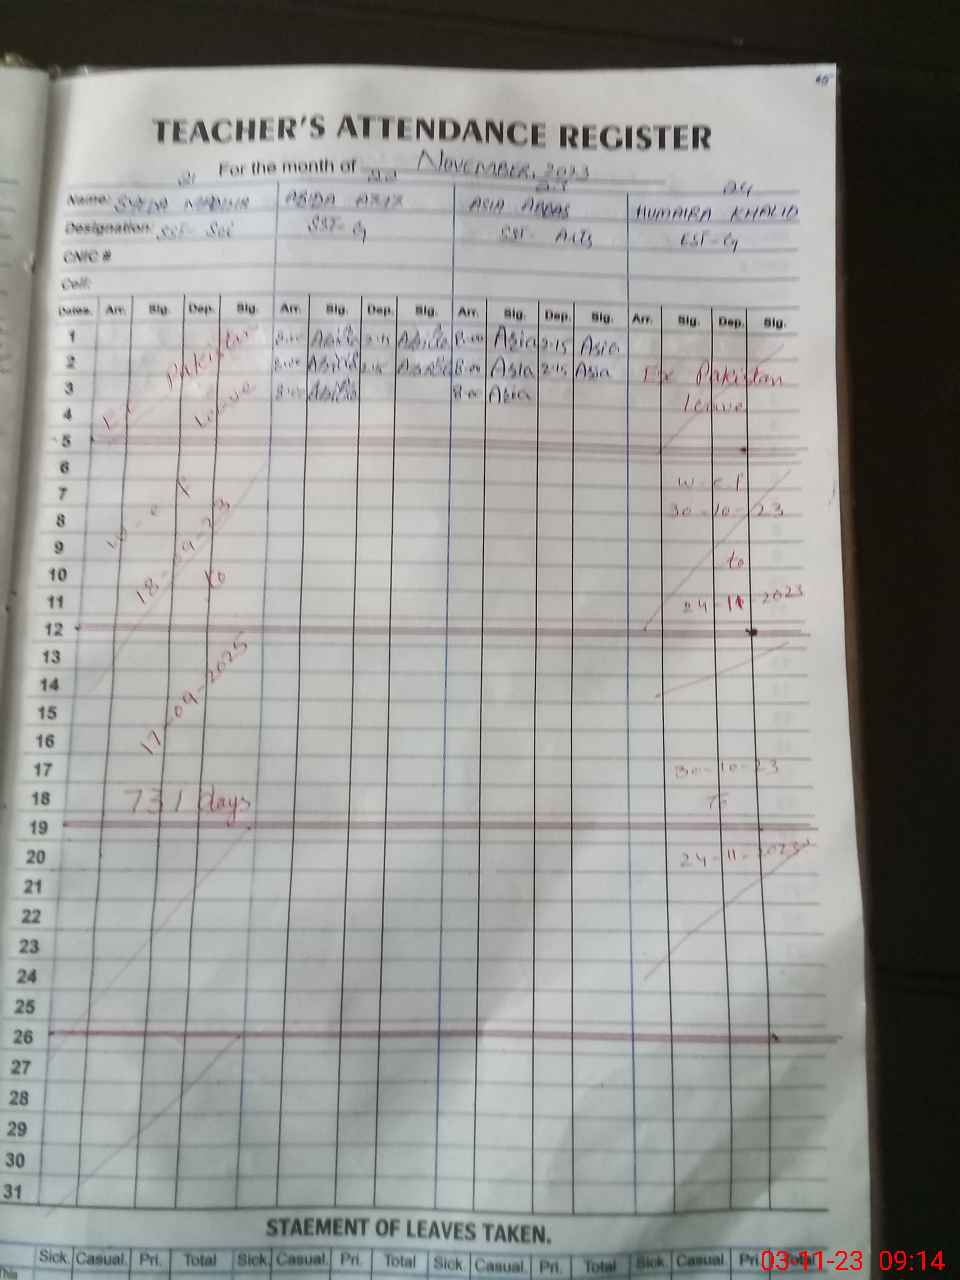 TEACHER'S ATTENDANCE REGISTER
For the month of NOVEMBER, 2023
24
Name: ABIDA AZIZ ASIA ABBAS HUMAIRA KHALID
Designation: SST- Sci SST- SST- Arts EST-
CNIC #
Cell:
Dates. Arr. Sig. Dep. Sig. Arr. Sig. Dep. Sig. Arr. Sig. Dep. Sig. Arr. Sig. Dep. Sig.
1 8:00 Abida 2:15 Abida 8:00 Asia 2:15 Asia
2 Ex Pakistan 8:00 Abida 2:15 Abida 8:00 Asia 2:15 Asia Ex Pakistan
3 Leave 8:00 Abida 8:00 Asia Leave
4
5
6
7 w-e-f w-e-f
8 18-09-23 30-10-23
9
10 to to
11 24-11-2023
12
13
14
15 17-09-2025
16
17 30-10-23
18 731 days To
19
20 24-11-2023
21
22
23
24
25
26
27
28
29
30
31
STAEMENT OF LEAVES TAKEN.
Sick. Casual. Pri. Total Sick. Casual. Pri. Total Sick. Casual. Pri. Total Sick. Casual. Pri. Total
This
03-11-23 09:14